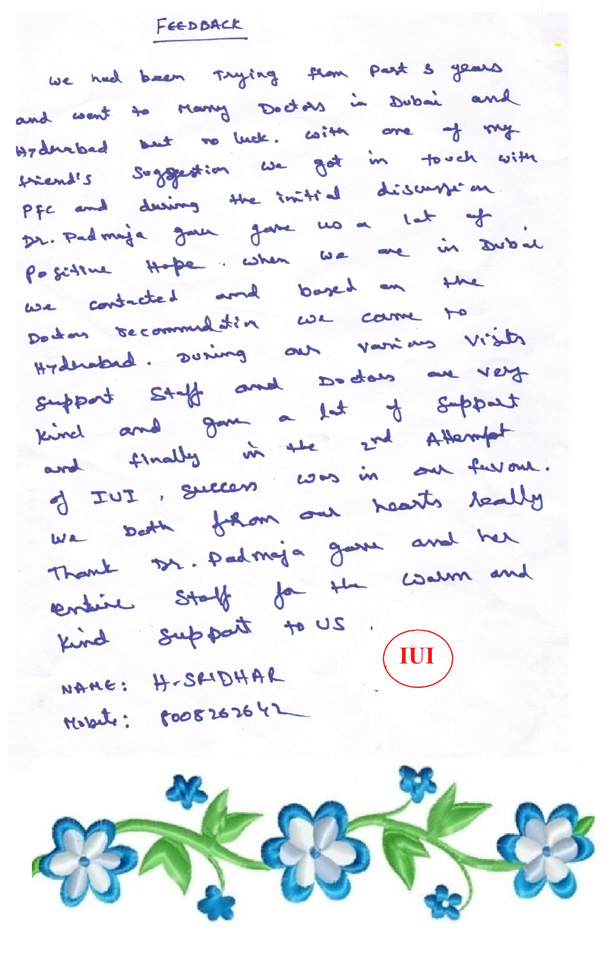 FEEDBACK
We had been Trying from Past 3 years
and went to Many Doctors in Dubai and
Hyderabad but no luck. With one of my
friend's suggestion we got in touch with
PFC and during the initial discussion
Dr. Padmaja garu gave us a lot of
Positive Hope. When we are in Dubai
We contacted and based on the
Doctors recommendation we came to
Hyderabad. During our various visits
Support Staff and Doctors are very
Kind and gave a lot of Support
and finally in the 2nd Attempt
of IUI, success was in our favour.
We both from our hearts really
Thank Dr. Padmaja garu and her
entire Staff for the warm and
Kind Support to US.
IUI
NAME: H. SRIDHAR
Mobile: 8008262642